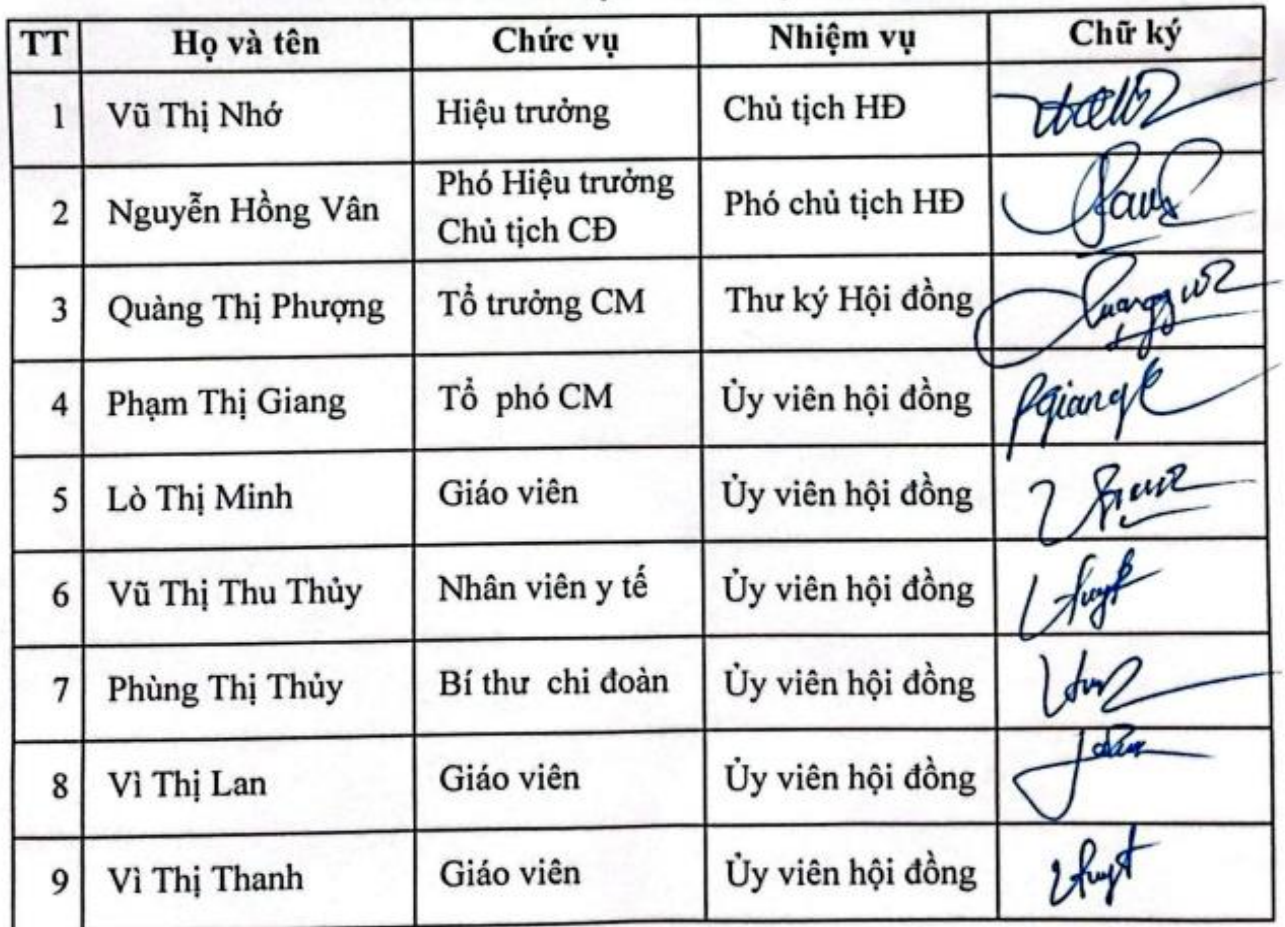 TT Họ và tên Chức vụ Nhiệm vụ Chữ ký
1 Vũ Thị Nhớ Hiệu trưởng Chủ tịch HĐ
2 Nguyễn Hồng Vân Phó Hiệu trưởng Phó chủ tịch HĐ
Chủ tịch CĐ
3 Quàng Thị Phượng Tổ trưởng CM Thư ký Hội đồng
4 Phạm Thị Giang Tổ phó CM Ủy viên hội đồng
5 Lò Thị Minh Giáo viên Ủy viên hội đồng
6 Vũ Thị Thu Thủy Nhân viên y tế Ủy viên hội đồng
7 Phùng Thị Thủy Bí thư chi đoàn Ủy viên hội đồng
8 Vì Thị Lan Giáo viên Ủy viên hội đồng
9 Vì Thị Thanh Giáo viên Ủy viên hội đồng